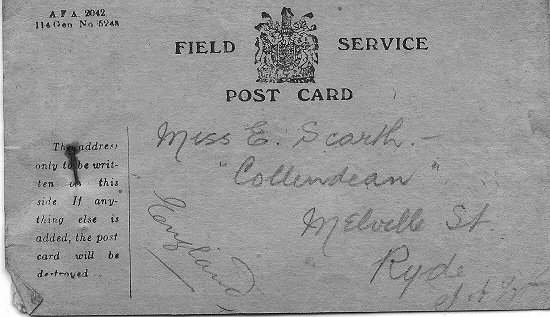 A.F.A. 2042.
114 Gen No 5248
FIELD SERVICE
POST CARD
The address
only to be writ-
ten on this
side If any-
thing else is
added, the post
card will be
destroyed
Miss E. Scarth.-
"Collendean"
Melville St
Ryde
England